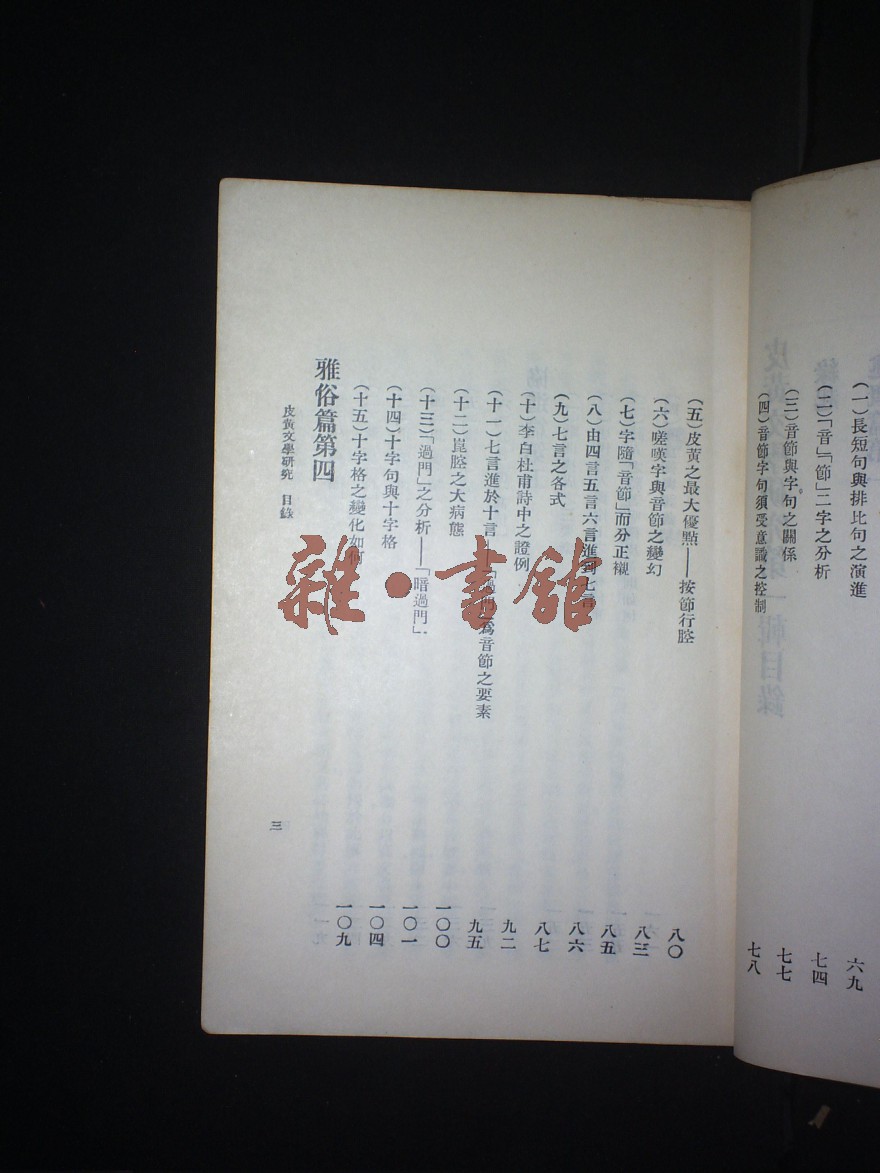 (一)長短句與排比句之演進 六九
(二)「音」「節」二字之分析 七四
(三)音節與字句之關係 七七
(四)音節字句須受意識之控制 七八
(五)皮黃之最大優點——按節行腔 八〇
(六)嗟嘆字與音節之變幻 八三
(七)字隨「音節」而分正襯 八五
(八)由四言五言六言進到七言 八六
(九)七言之各式 八七
(十)李白杜甫詩中之證例 九二
(十一)七言進於十言——「過門」為音節之要素 九五
(十二)崑腔之大病態 一〇〇
(十三)「過門」之分析——「暗過門」 一〇一
(十四)十字句與十字格 一〇四
(十五)十字格之變化如何 一〇九
雅俗篇第四
皮黃文學研究 目錄
三
雜·書館